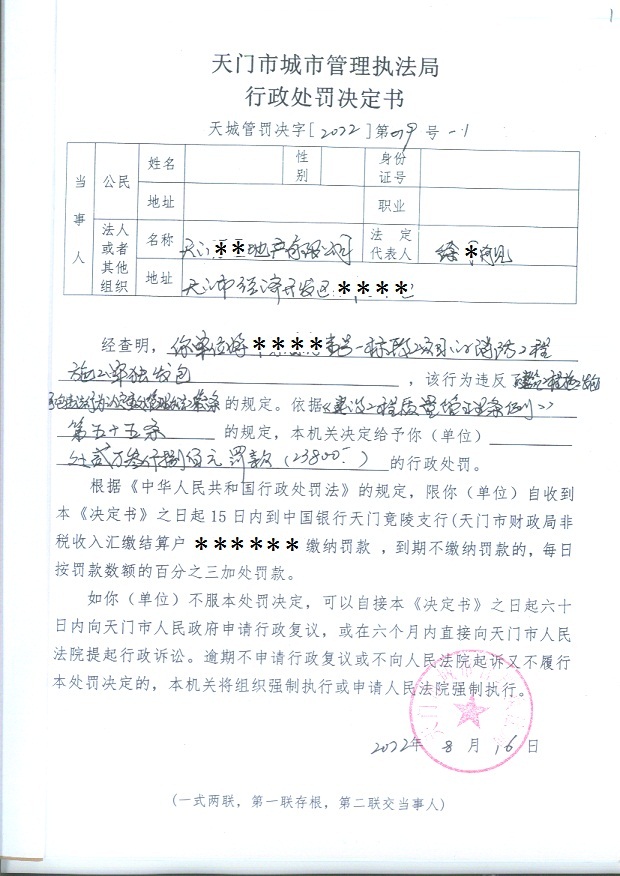 天门市城市管理执法局
行政处罚决定书
天城管罚决字[2022]第079号-1
当事人
公民
姓名
性别
身份证号
地址
职业
法人或者其他组织
名称
天门**地产有限公司
法定代表人
徐*
地址
天门市经济开发区****
经查明,你单位将****一标段项目的消防工程
施工单独发包,该行为违反
的规定。依据《建设工程质量管理条例》
第五十五条的规定,本机关决定给予你(单位)
处贰万叁仟捌佰元罚款(23800.)的行政处罚。
根据《中华人民共和国行政处罚法》的规定,限你(单位)自收到
本《决定书》之日起15日内到中国银行天门竟陵支行(天门市财政局非
税收入汇缴结算户******缴纳罚款,到期不缴纳罚款的,每日
按罚款数额的百分之三加处罚款。
如你(单位)不服本处罚决定,可以自接本《决定书》之日起六十
日内向天门市人民政府申请行政复议,或在六个月内直接向天门市人民
法院提起行政诉讼。逾期不申请行政复议或不向人民法院起诉又不履行
本处罚决定的,本机关将组织强制执行或申请人民法院强制执行。
2022年8月16日
(一式两联,第一联存根,第二联交当事人)